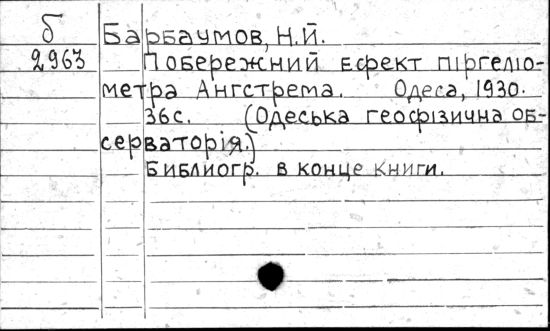 б Барбаумов, Н.Й.
2963 Побережний ефект піргеліо-
метра Ангстрема. Одеса, 1930.
36с. (Одеська геофізична об-
серваторія.)
Библиогр. в конце книги.